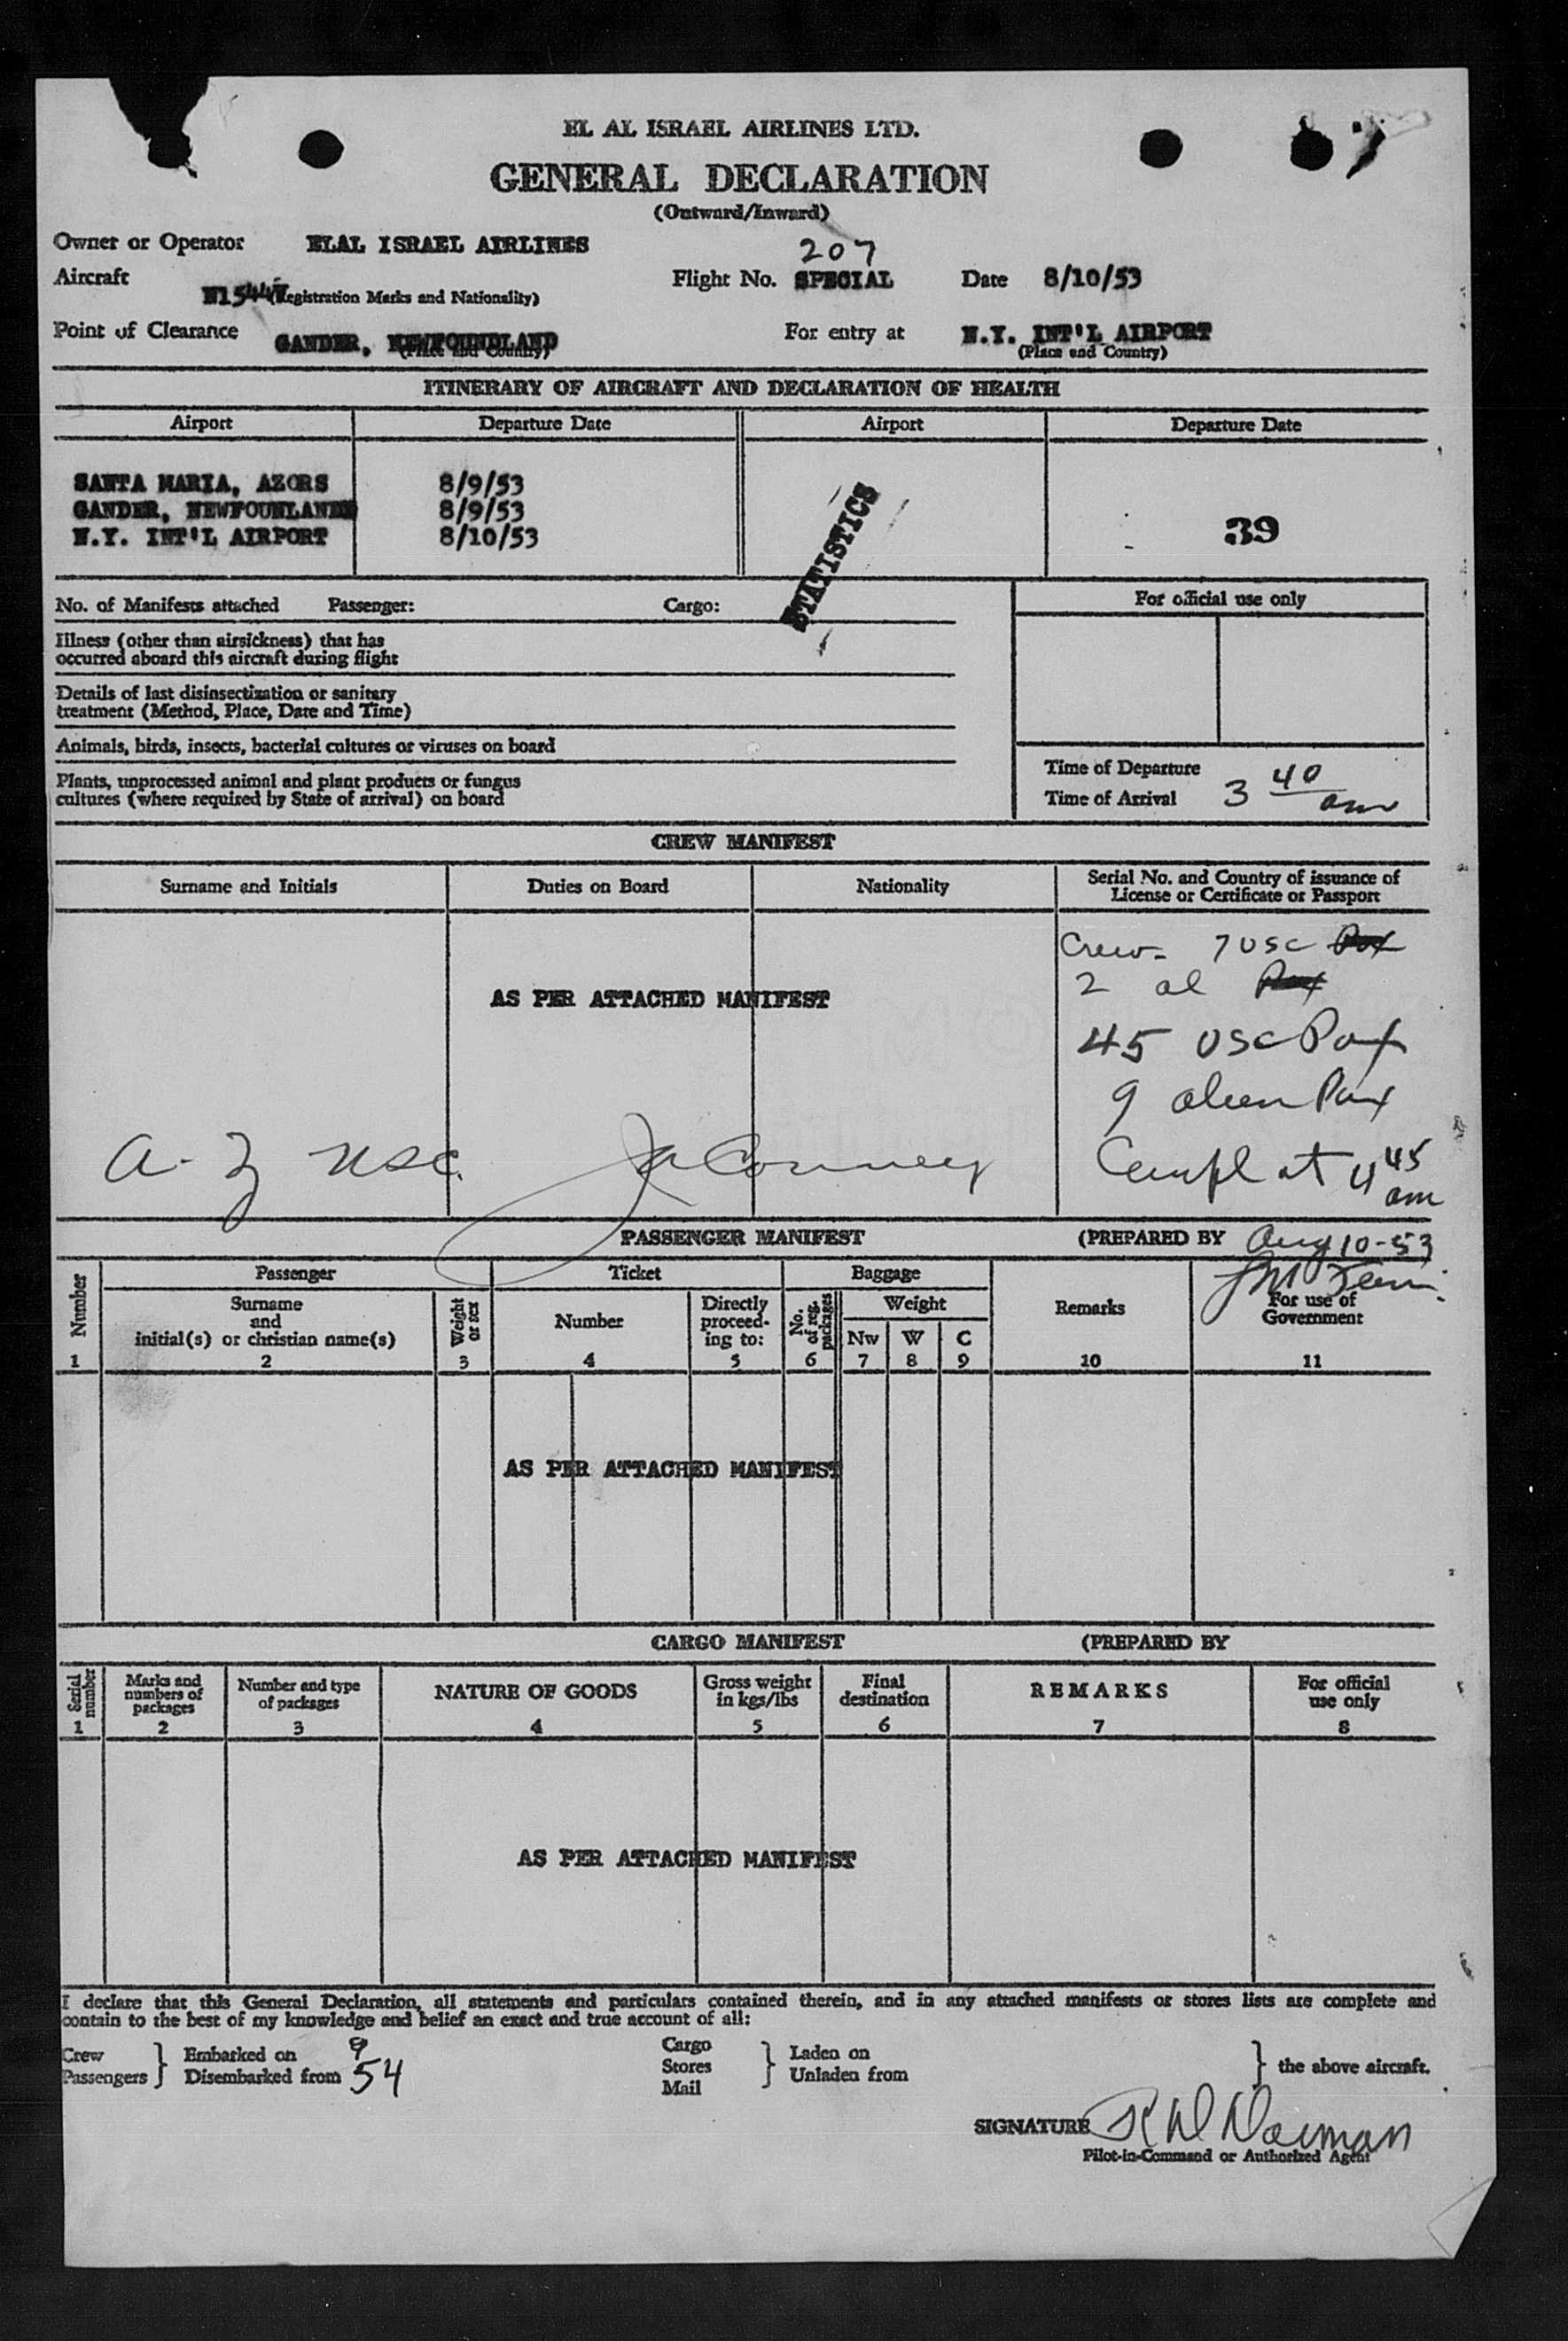 EL AL ISRAEL AIRLINES LTD.
GENERAL DECLARATION
(Outward/Inward)
Owner or Operator ELAL ISRAEL AIRLINES
207
Aircraft (Registration Marks and Nationality) Flight No. SPECIAL Date 8/10/53
Point of Clearance GANDER, NEWFOUNDLAND For entry at N.Y. INT'L AIRPORT
(Place and Country) (Place and Country)
ITINERARY OF AIRCRAFT AND DECLARATION OF HEALTH
Airport Departure Date Airport Departure Date
SANTA MARIA, AZORS 8/9/53
GANDER, NEWFOUNLAND 8/9/53
N.Y. INT'L AIRPORT 8/10/53
39
STATISTICS
No. of Manifests attached Passenger: Cargo:
For official use only
Illness (other than airsickness) that has
occurred aboard this aircraft during flight
Details of last disinsectization or sanitary
treatment (Method, Place, Date and Time)
Animals, birds, insects, bacterial cultures or viruses on board
Plants, unprocessed animal and plant products or fungus
cultures (where required by State of arrival) on board
Time of Departure
Time of Arrival 3 40 am
CREW MANIFEST
Surname and Initials Duties on Board Nationality Serial No. and Country of issuance of
License or Certificate or Passport
Crew - 7 USC Pax
2 al Pax
AS PER ATTACHED MANIFEST
45 USC Pax
9 alien Pax
Compl at 4 45 am
PASSENGER MANIFEST (PREPARED BY Aug 10-53
Number Passenger Ticket Baggage
Surname
and
initial(s) or christian name(s)
Weight or sex
Number
Directly
proceed-
ing to:
No. of reg. packages
Weight
Nw W C
Remarks
For use of
Government
1 2 3 4 5 6 7 8 9 10 11
AS PER ATTACHED MANIFEST
CARGO MANIFEST (PREPARED BY
Serial number
Marks and
numbers of
packages
Number and type
of packages
NATURE OF GOODS
Gross weight
in kgs/lbs
Final
destination
REMARKS
For official
use only
1 2 3 4 5 6 7 8
AS PER ATTACHED MANIFEST
I declare that this General Declaration, all statements and particulars contained therein, and in any attached manifests or stores lists are complete and
contain to the best of my knowledge and belief an exact and true account of all:
Crew
Passengers
Embarked on 9
Disembarked from 54
Cargo
Stores
Mail
Laden on
Unladen from
the above aircraft.
SIGNATURE
Pilot-in-Command or Authorized Agent